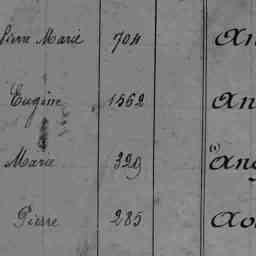 Pierre Marie 704 An
Eugène 1562 An
Marie 329 (1) Ang
Pierre 285 Ao